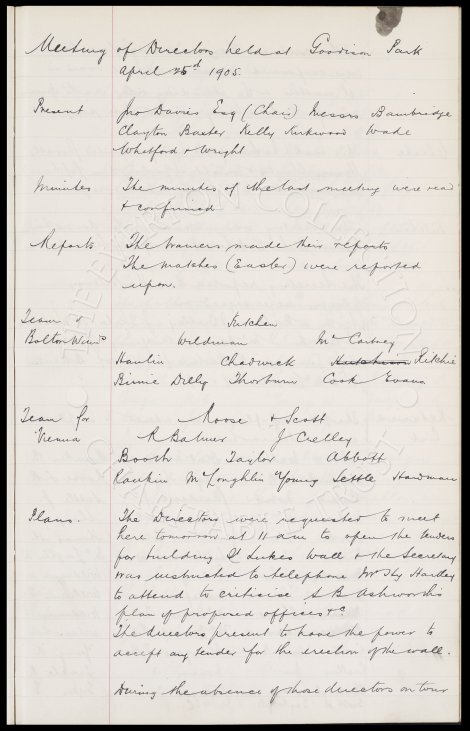 Meeting of Directors held at Goodison Park
April 25th 1905.
Present Jno Davies Esq (Chair) Messrs Bainbridge
Clayton Baxter Kelly Kirkwood Wade
Whitford & Wright
Minutes The minutes of the last meeting were read
& confirmed
Reports The trainers made their reports
The matches (Easter) were reported
upon.
Team v Kitchen
Bolton Wand's Wildman McCartney
Hanlin Chadwick Hutchison Ritchie
Birnie Dilly Thorburn Cook Evans
Team for Roose & Scott
Vienna R Balmer J Crelley
Booth Taylor Abbott
Rankin McLoughlin Young Settle Hardman
Plans. The Directors were requested to meet
here tomorrow at 11 am to open the tenders
for building St Lukes wall & the Secretary
was instructed to telephone Mr Hy Hartley
to attend to criticise S B Ashworth's
plan of proposed offices &c
The directors present to have the power to
accept any tender for the erection of the wall.
During the absence of those directors on tour
THE EVERTON COLLECTION
CHARITABLE TRUST